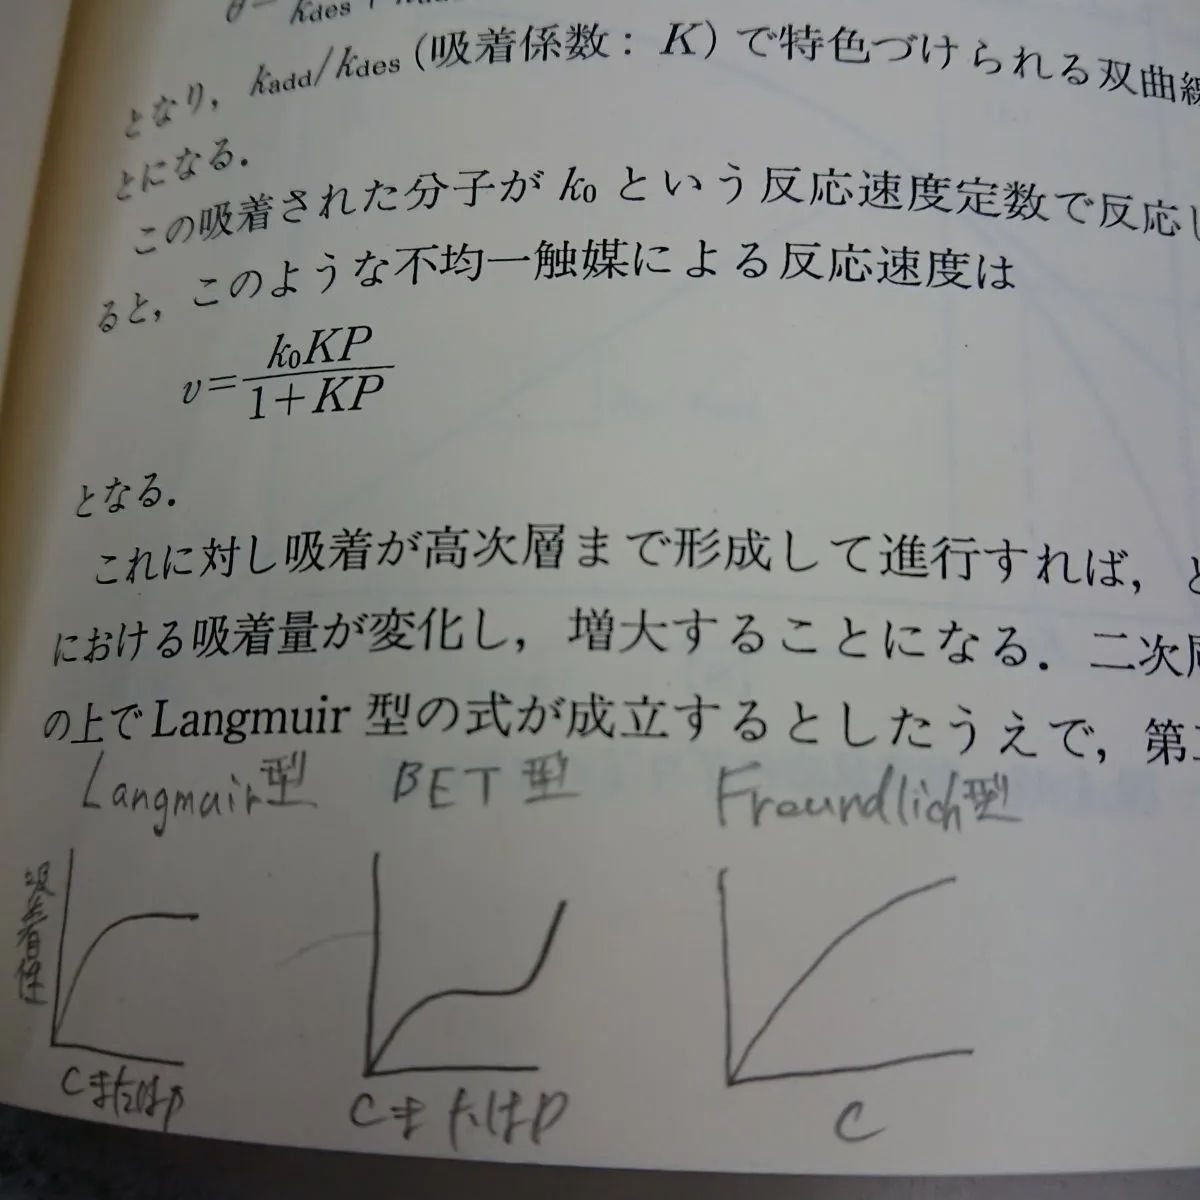 θ= kdes
となり，kadd/kdes (吸着係数： K) で特色づけられる双曲線
とになる．
この吸着された分子が k0 という反応速度定数で反応し
ると，このような不均一触媒による反応速度は
v= k0KP
1+KP
となる．
これに対し吸着が高次層まで形成して進行すれば，と
における吸着量が変化し，増大することになる．二次
の上で Langmuir 型の式が成立するとしたうえで，第二
Langmuir型 BET型 Freundlich型
吸着
Cまたはp Cまたはp C